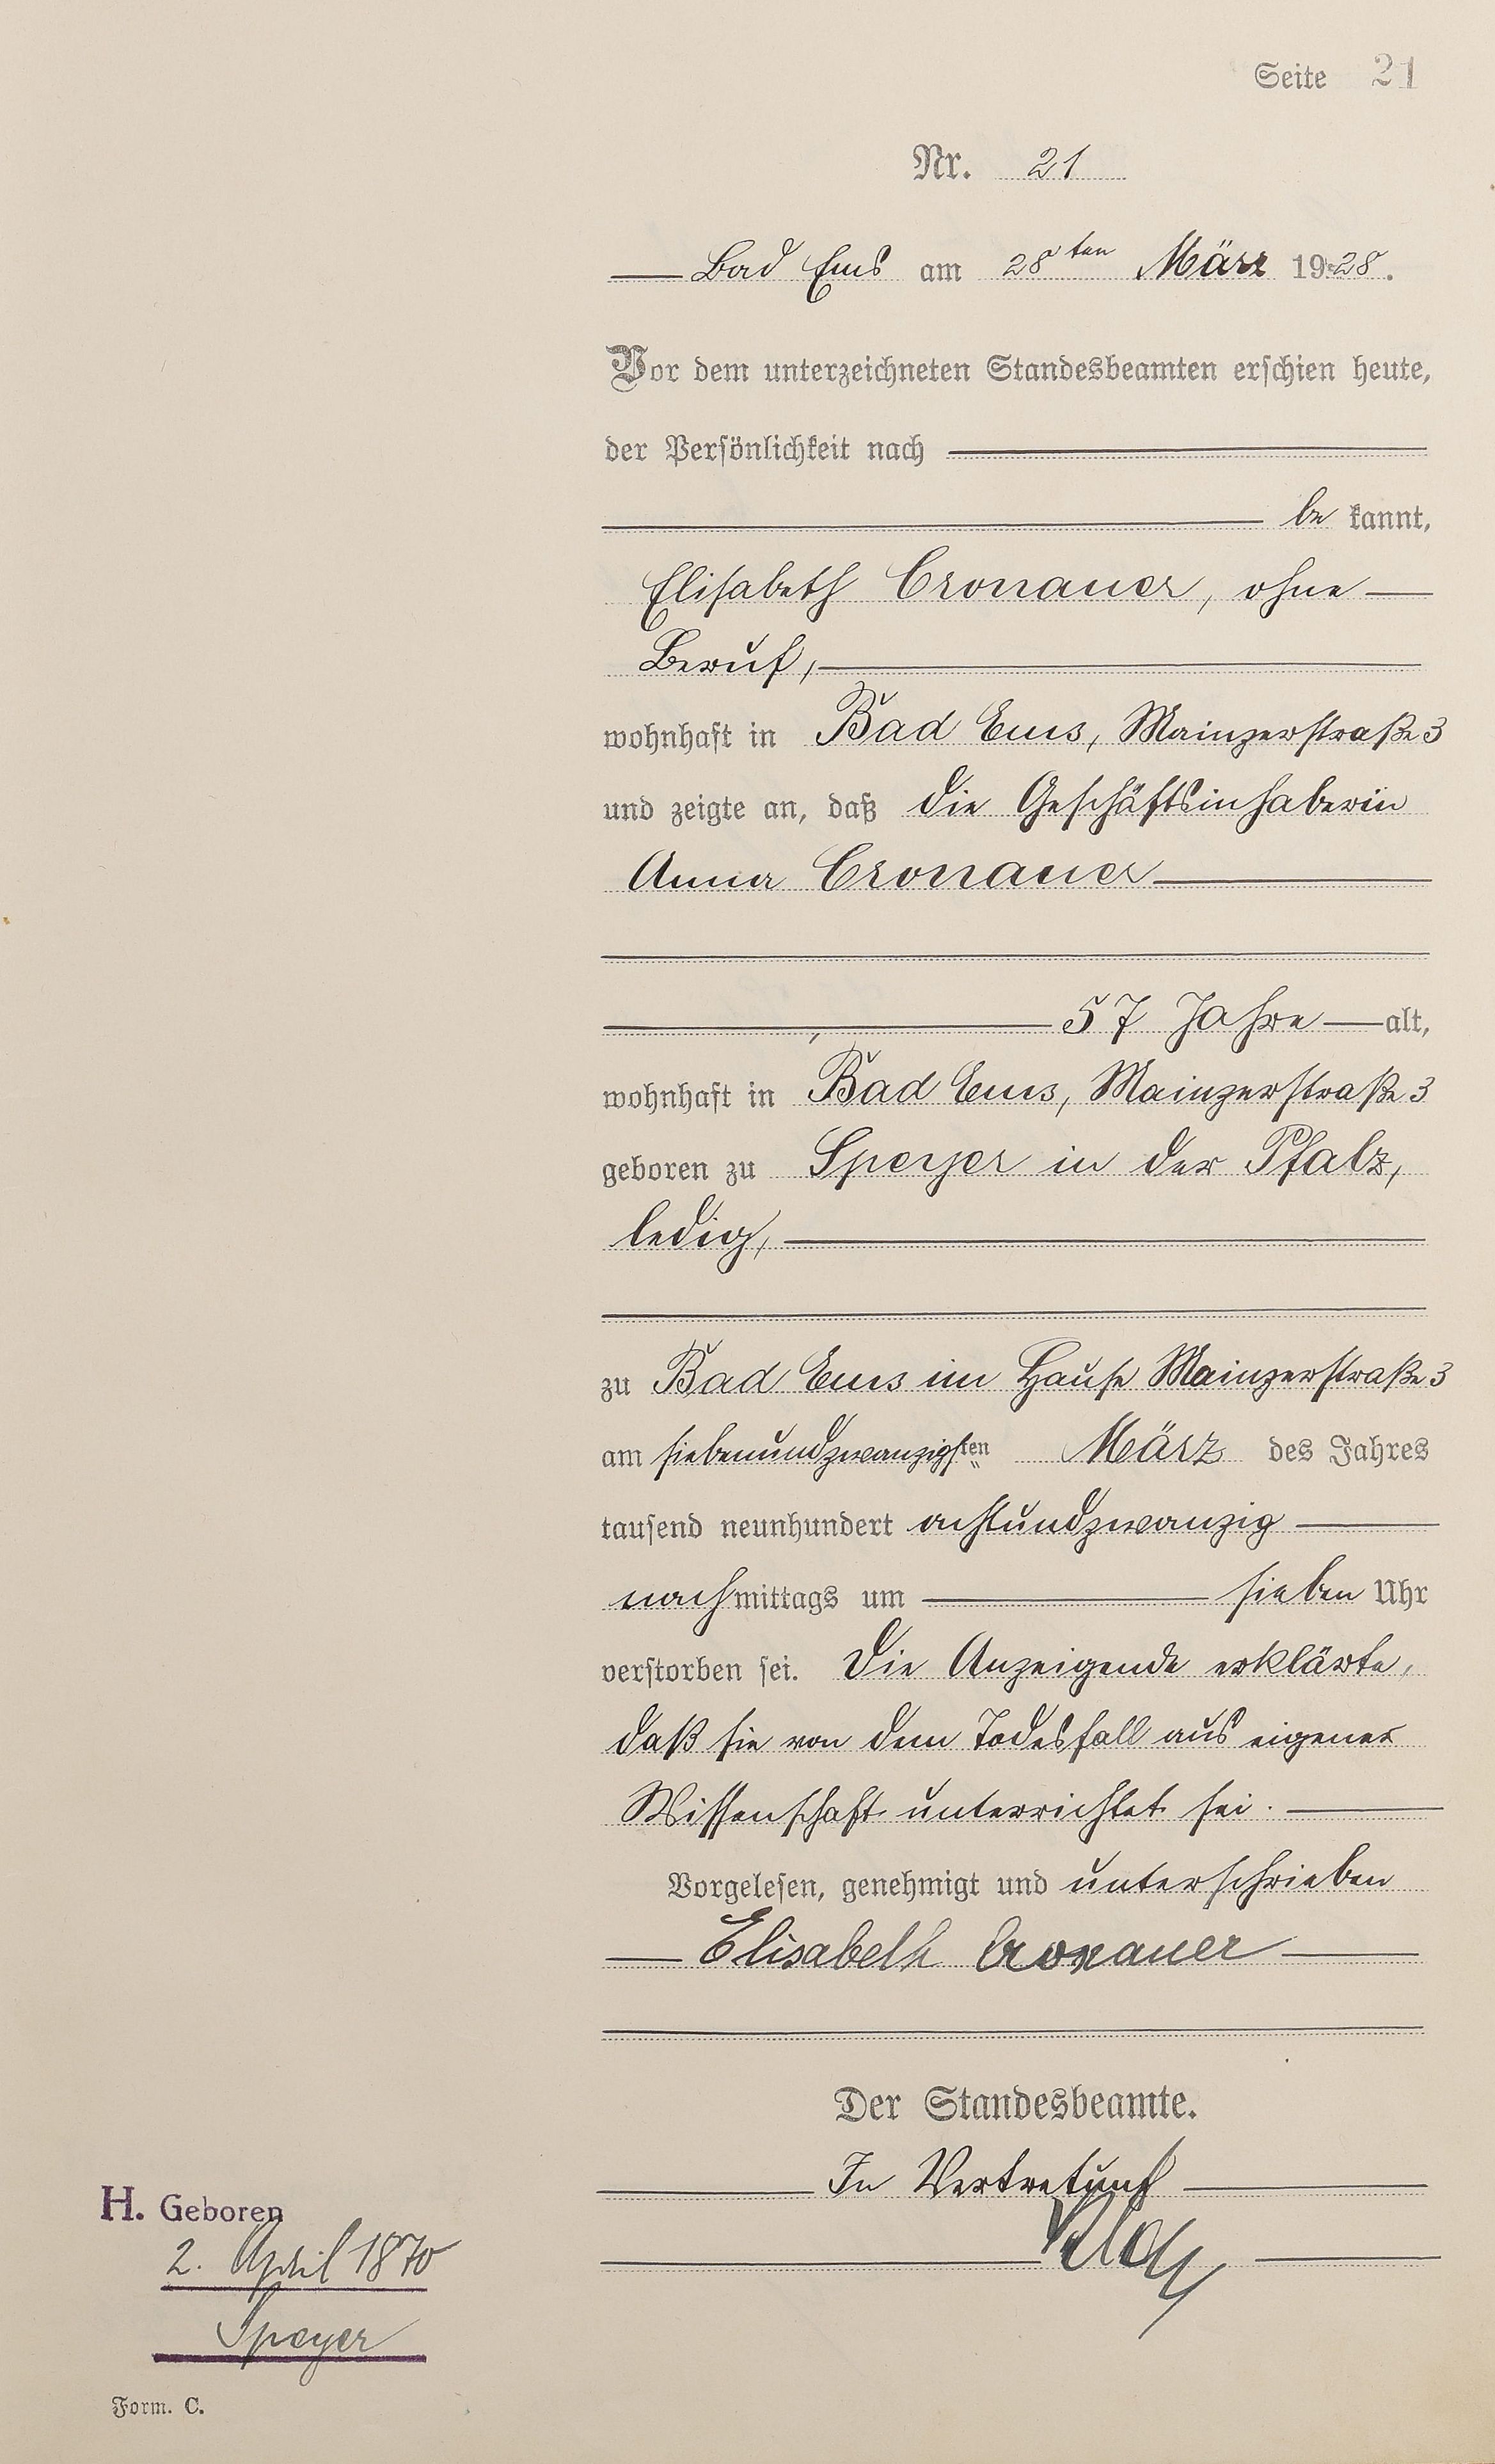 Seite 21
Nr. 21
Bad Ems am 28ten März 1928.
Vor dem unterzeichneten Standesbeamten erschien heute,
der Persönlichkeit nach
be kannt,
Elisabeth Cronauer, ohne
Beruf,
wohnhaft in Bad Ems, Mainzerstraße 3
und zeigte an, daß die Geschäftsinhaberin
Anna Cronauer
57 Jahre alt,
wohnhaft in Bad Ems, Mainzerstraße 3
geboren zu Speyer in der Pfalz,
ledig,
zu Bad Ems im Hause Mainzerstraße 3
am siebenundzwanzigsten März des Jahres
tausend neunhundert achtundzwanzig
nachmittags um sieben Uhr
verstorben sei. Die Anzeigende erklärte,
daß sie von dem Todesfall aus eigener
Wissenschaft unterrichtet sei.
Vorgelesen, genehmigt und unterschrieben
Elisabeth Cronauer
Der Standesbeamte.
In Vertretung
H. Geboren
2. April 1870
Speyer
Form. C.